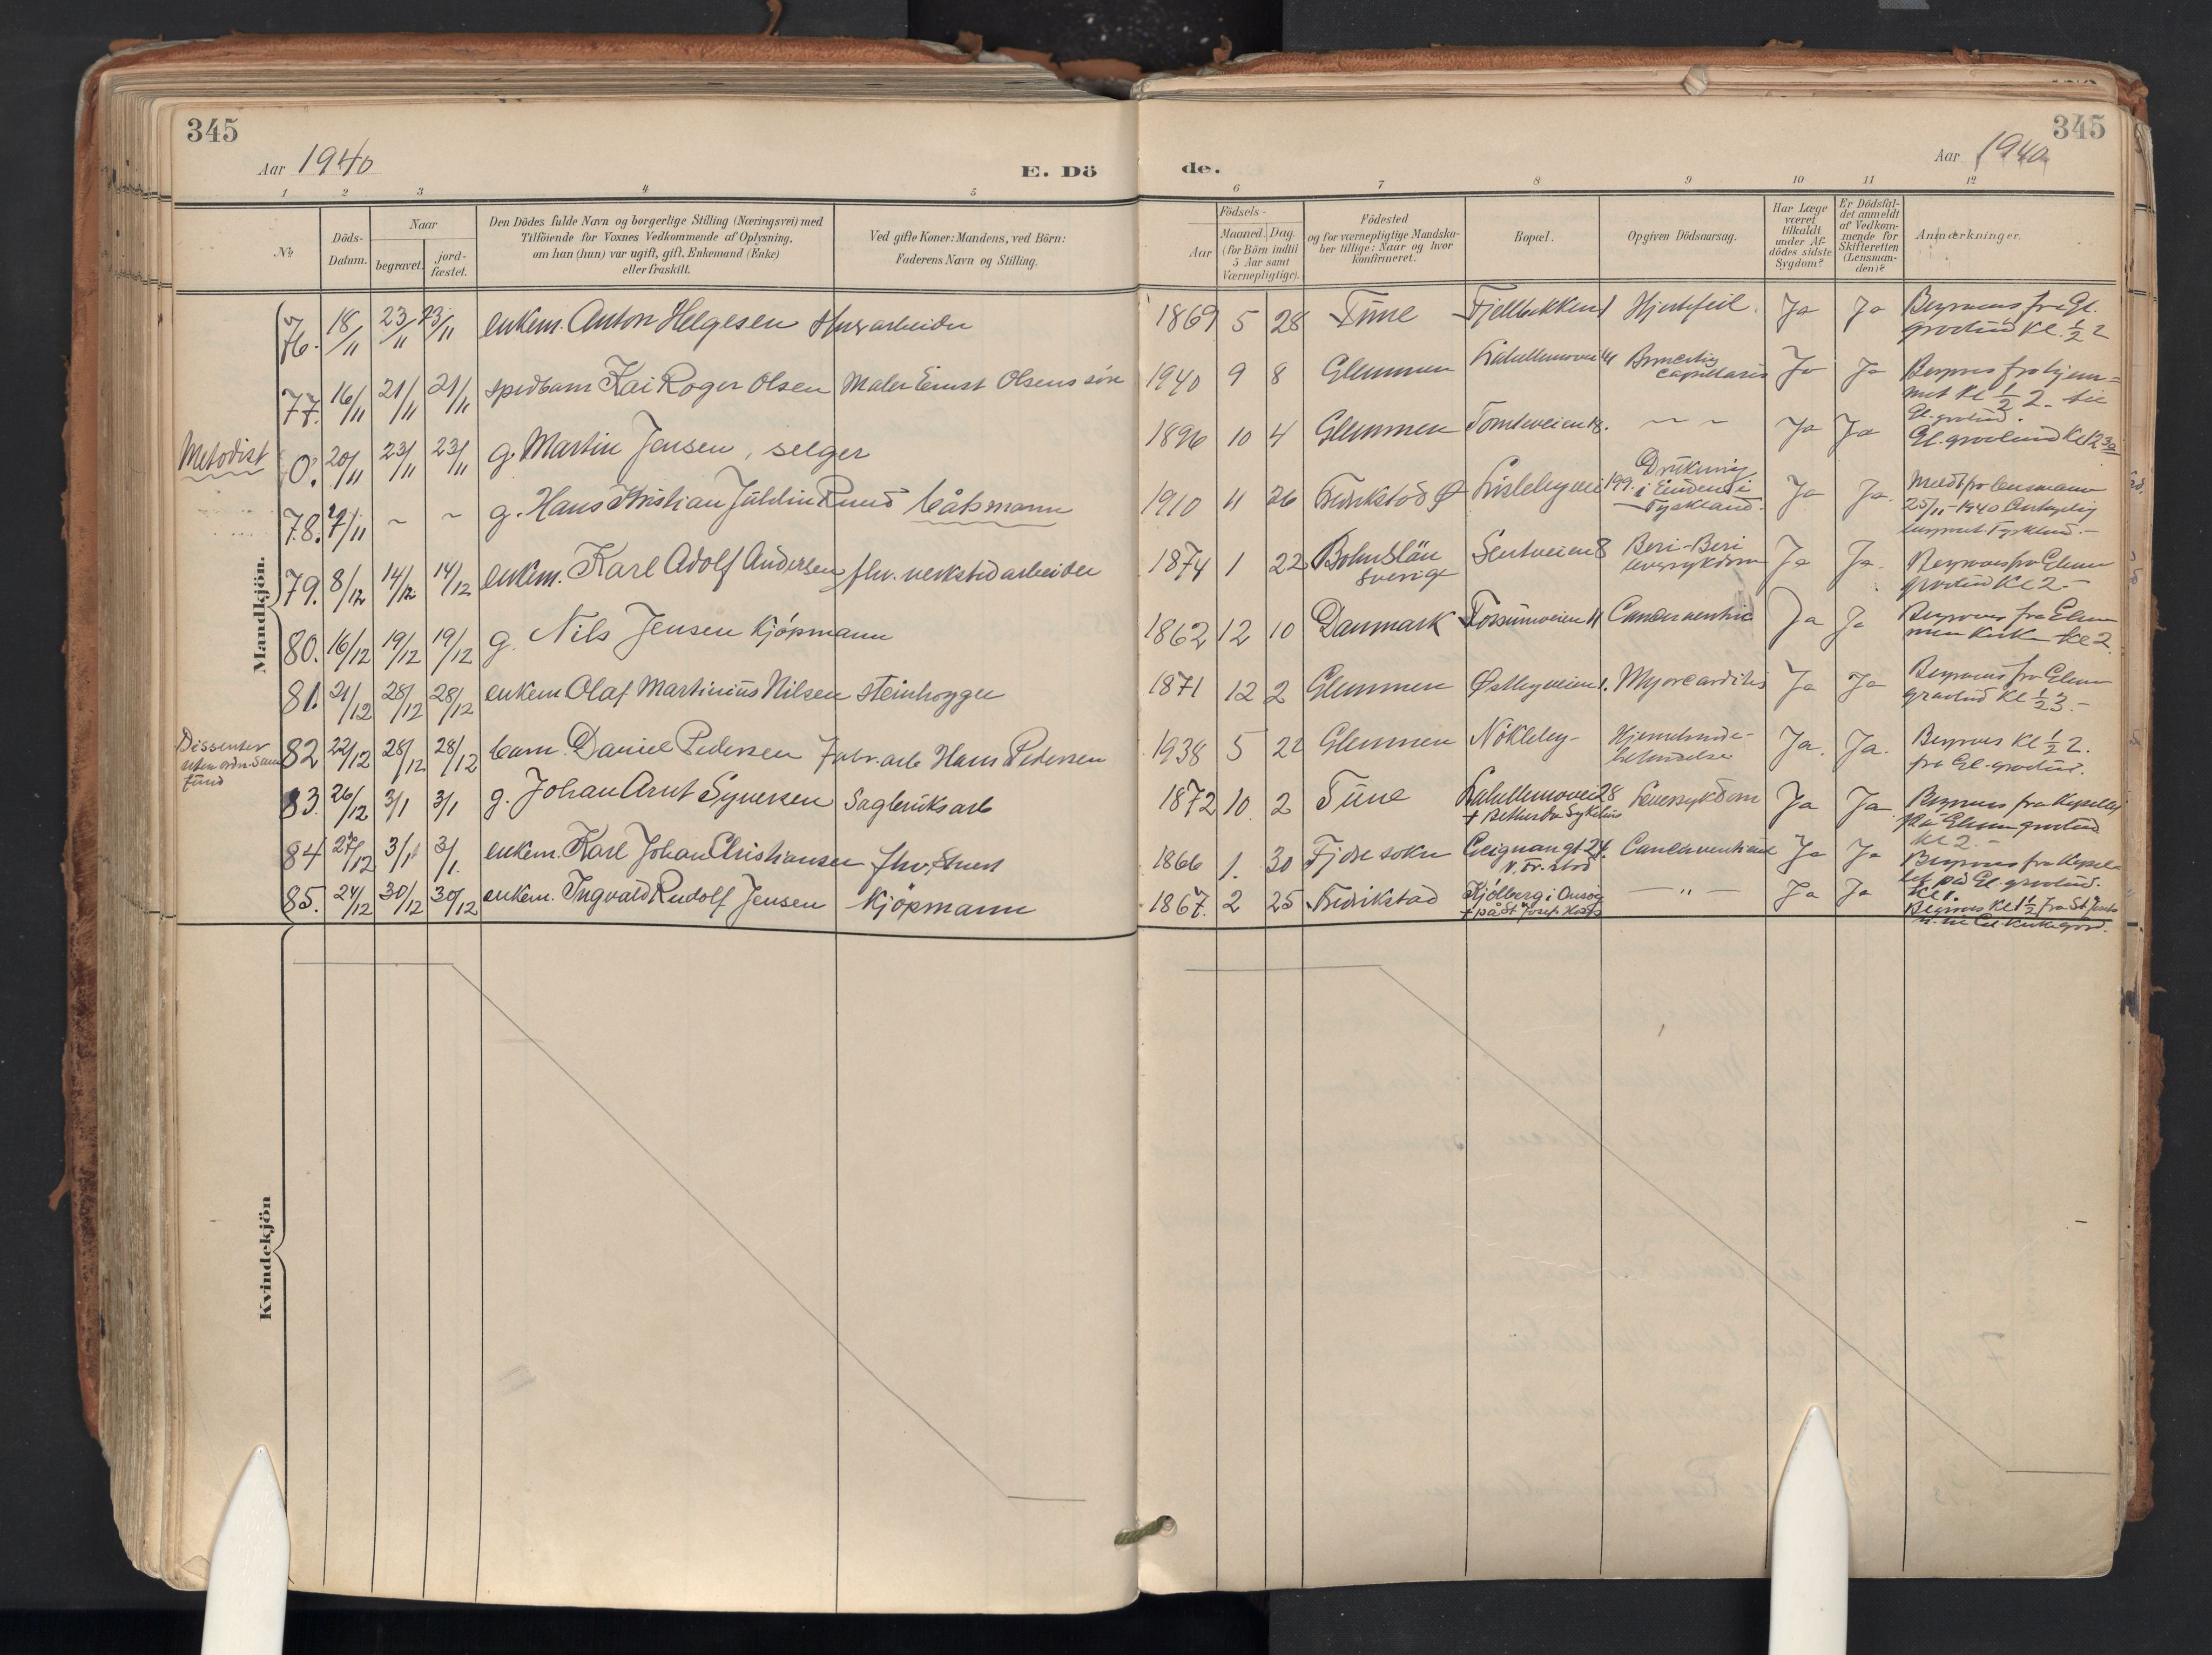 345
Aar 1940
E. Dö
1 2 3 4 5
No.
Döds-Datum.
Naar
begravet.
jord-fæstet.
Den Dödes fulde Navn og borgerlige Stilling (Næringsvei) med
Tilföiende for Voxnes Vedkommende af Oplysning,
om han (hun) var ugift, gift, Enkemand (Enke)
eller fraskilt.
Ved gifte Koner: Mandens, ved Börn:
Faderens Navn og Stilling.
Mandkjön.
76. 18/11 23/11 23/11 enkem. Anton Helgesen arbeider
77. 16/11 21/11 21/11 spedbarn Kai Roger Olsen Maler Ernst Olsens sön
Metodist 0. 20/11 23/11 23/11 g. Martin Jensen, selger
78. 7/11 ~ ~ g. Hans Kristian Juhlin Ruud båtsmann
79. 8/12 14/12 14/12 enkem. Karl Adolf Andersen fhv. verkstedarbeider
80. 16/12 19/12 19/12 g. Nils Jensen Kjöpmann
81. 21/12 28/12 28/12 enkem Olaf Martinius Nilsen steinhogger
Dissenter
uten ordn. Sam
fund
82 22/12 28/12 28/12 barn Daniel Pedersen Fabr.arb Hans Pedersen
83. 26/12 3/1 3/1 g. Johan Arnt Syversen Sagbruksarb
84 27/12 3/1 3/1. enkem. Karl Johan Christiansen fhv.
85. 24/12 30/12 30/12 enkem. Ingvald Rudolf Jensen Kjöpmann
Kvindekjön
de.
345
Aar 1940
6 7 8 9 10 11 12
Födsels-
Aar
Maaned. Dag.
(for Börn indtil
5 Aar samt
Værnepligtige).
Födested
og for værnepligtige Mandska-
ber tillige: Naar og hvor
konfirmeret.
Bopæl.
Opgiven Dödsaarsag.
Har Læge
været
tilkaldt
under Af-
dödes sidste
Sygdom?
Er Dödsfal-
det anmeldt
af Vedkom-
mende for
Skifteretten
(Lensman-
den)?
Anmærkninger.
1869 5 28 Tune Fjellbakken 1 Hjertefeil. Ja Ja Begraves fra Gl.
gravlund Kl. ½ 2
1940 9 8 Glemmen Ja Ja Begraves fra hjem=
met Kl ½ 2 - til
Gl. gravlund.
1896 10 4 Glemmen Tomteveien 18. ~ ~ Ja Ja Gl. gravlund Kl 2 30
1910 11 26 Fredrikstad Ø Lislebyveien 199. Drukning
i Emden i
Tyskland. Ja Ja. Meldt fra lensmann
25/11-1940
Tyskland.-
1874 1 22 Bohuslän
Sverige 8 Beri-Beri
Ja Ja. Begraves fra Glem
gravlund Kl 2-
1862 12 10 Danmark Fossumveien 11 Cancer ventric Ja Ja Begraves fra Glem
men Kirke Kl 2.
1871 12 2 Glemmen Østbyveien 1. Myocarditis Ja Ja Begraves fra Glem
gravlund Kl ½ 3.-
1938 5 22 Glemmen Nökleby- Hjernehinde-
betendelse Ja. Ja. Begraves Kl ½ 2.
fra Gl. gravlund.
1872 10. 2 Tune 28
+ Betesda Sykehus Leversykdom Ja Ja Begraves fra Kapellet
på Glem gravlund
Kl 2.-
1866 1. 30 24.
Cancer ventricul Ja Ja Begraves fra Kapel-
let på Gl. gravlund.
Kl 1.
1867. 2 25 Fredrikstad Kjölberg i Onsöy
+ på St Josefs Hosp — " — Ja Ja Begraves Kl 1½ fra St. Josefs
til Gl. Kirkegård.